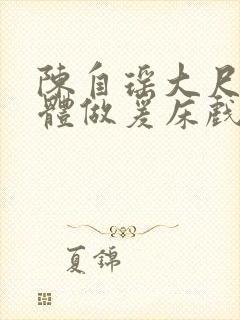 陳自瑶大尺
體做爰床戲
夏錦